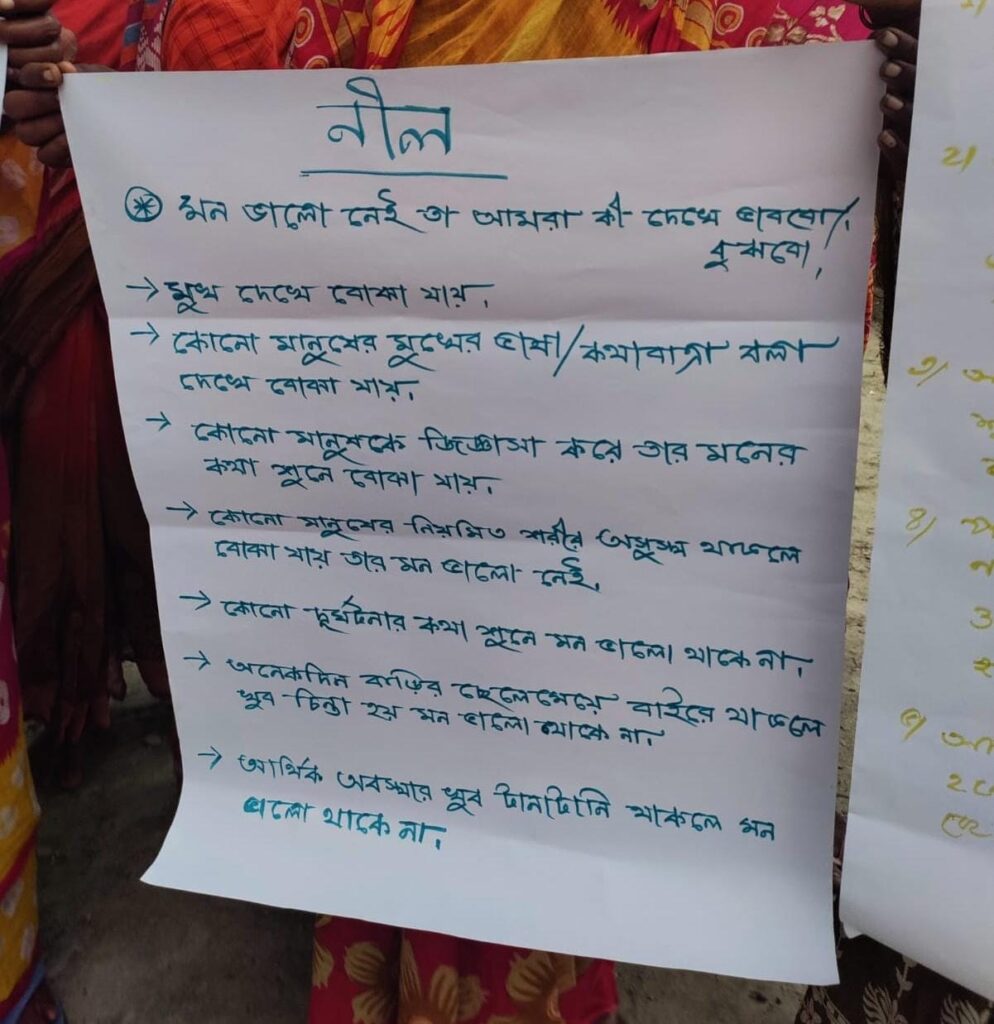 নীল
⊛ মন ভালো নেই তা আমরা কী দেখে ভাববো/
বুঝবো,
→ মুখ দেখে বোঝা যায়,
→ কোনো মানুষের মুখের ভাষা/কথাবার্ত্রা বলা
দেখে বোঝা যায়,
→ কোনো মানুষকে জিজ্ঞাসা করে তার মনের
কথা শুনে বোঝা যায়,
→ কোনো মানুষের নিয়মিত শরীর অসুস্থ থাকলে
বোঝা যায় তার মন ভালো নেই,
→ কোনো দুর্ঘটনার কথা শুনে মন ভালো থাকে না,
→ অনেকদিন বাড়ির ছেলেমেয়ে বাইরে থাকলে
খুব চিন্তা হয় মন ভালো থাকে না,
→ আর্থিক অবস্থার খুব টানাটানি থাকলে মন
ভালো থাকে না,
২/
৩/
৪/
৫/